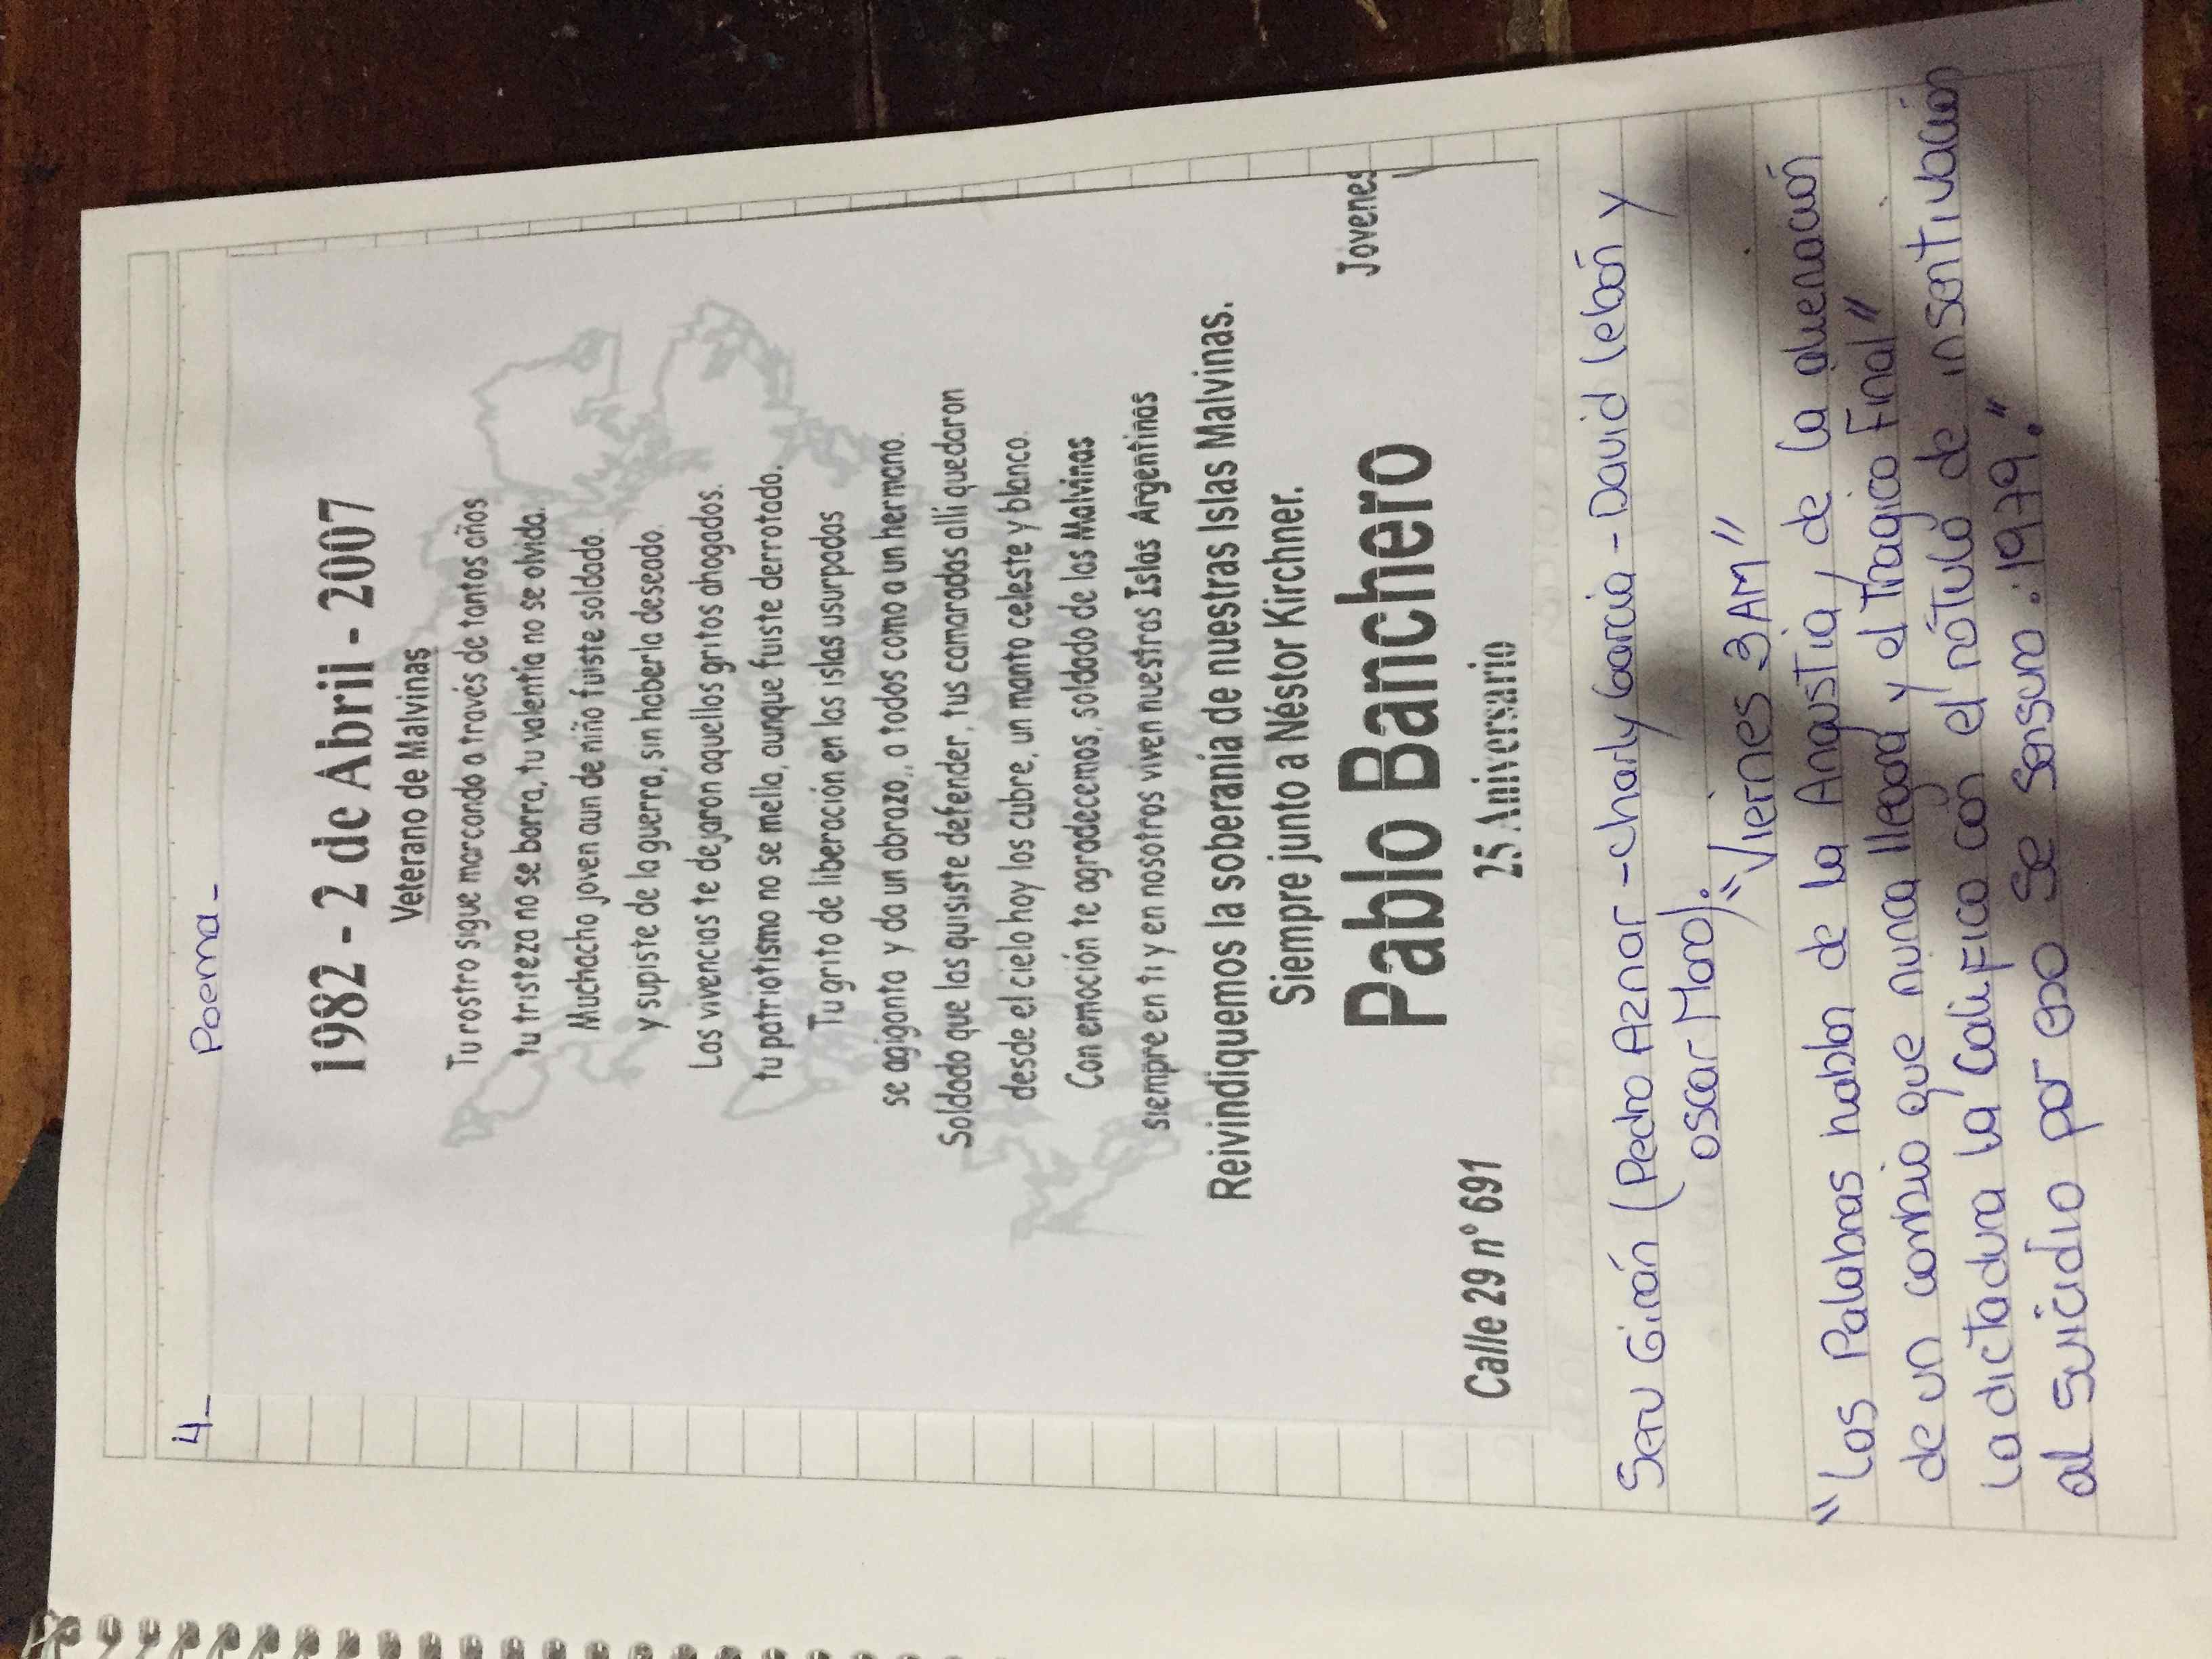 4_ Poema_
1982 - 2 de Abril - 2007
Veterano de Malvinas
Tu rostro sigue marcando a través de tantos años
tu tristeza no se borra, tu valentía no se olvida.
Muchacho joven aun de niño fuiste soldado.
y supiste de la guerra, sin haberla deseado.
Las vivencias te dejaron aquellos gritos ahogados.
tu patriotismo no se mella, aunque fuiste derrotado.
Tu grito de liberación en las islas usurpadas
se agiganta y da un abrazo,, a todos como a un hermano.
Soldado que las quisiste defender, tus camaradas allí quedaron
desde el cielo hoy los cubre, un manto celeste y blanco.
Con emoción te agradecemos, soldado de las Malvinas
siempre en ti y en nosotros viven nuestras Islas Argentinas
Reivindiquemos la soberanía de nuestras Islas Malvinas.
Siempre junto a Néstor Kirchner.
Pablo Banchero
Jovenes
Calle 29 n° 691 25 Aniversario
Seru Girán (Pedro Aznar - Charly García - David Lebón y
oscar Moro).
"Viernes 3 AM"
"Las Palabras hablan de la Angustia, de la alienación
de un cambio que nunca llegará y el Tragico Final"
La dictadura la califica con el rótulo de insentivación
al Suicidio por eso se sensura.:1979."